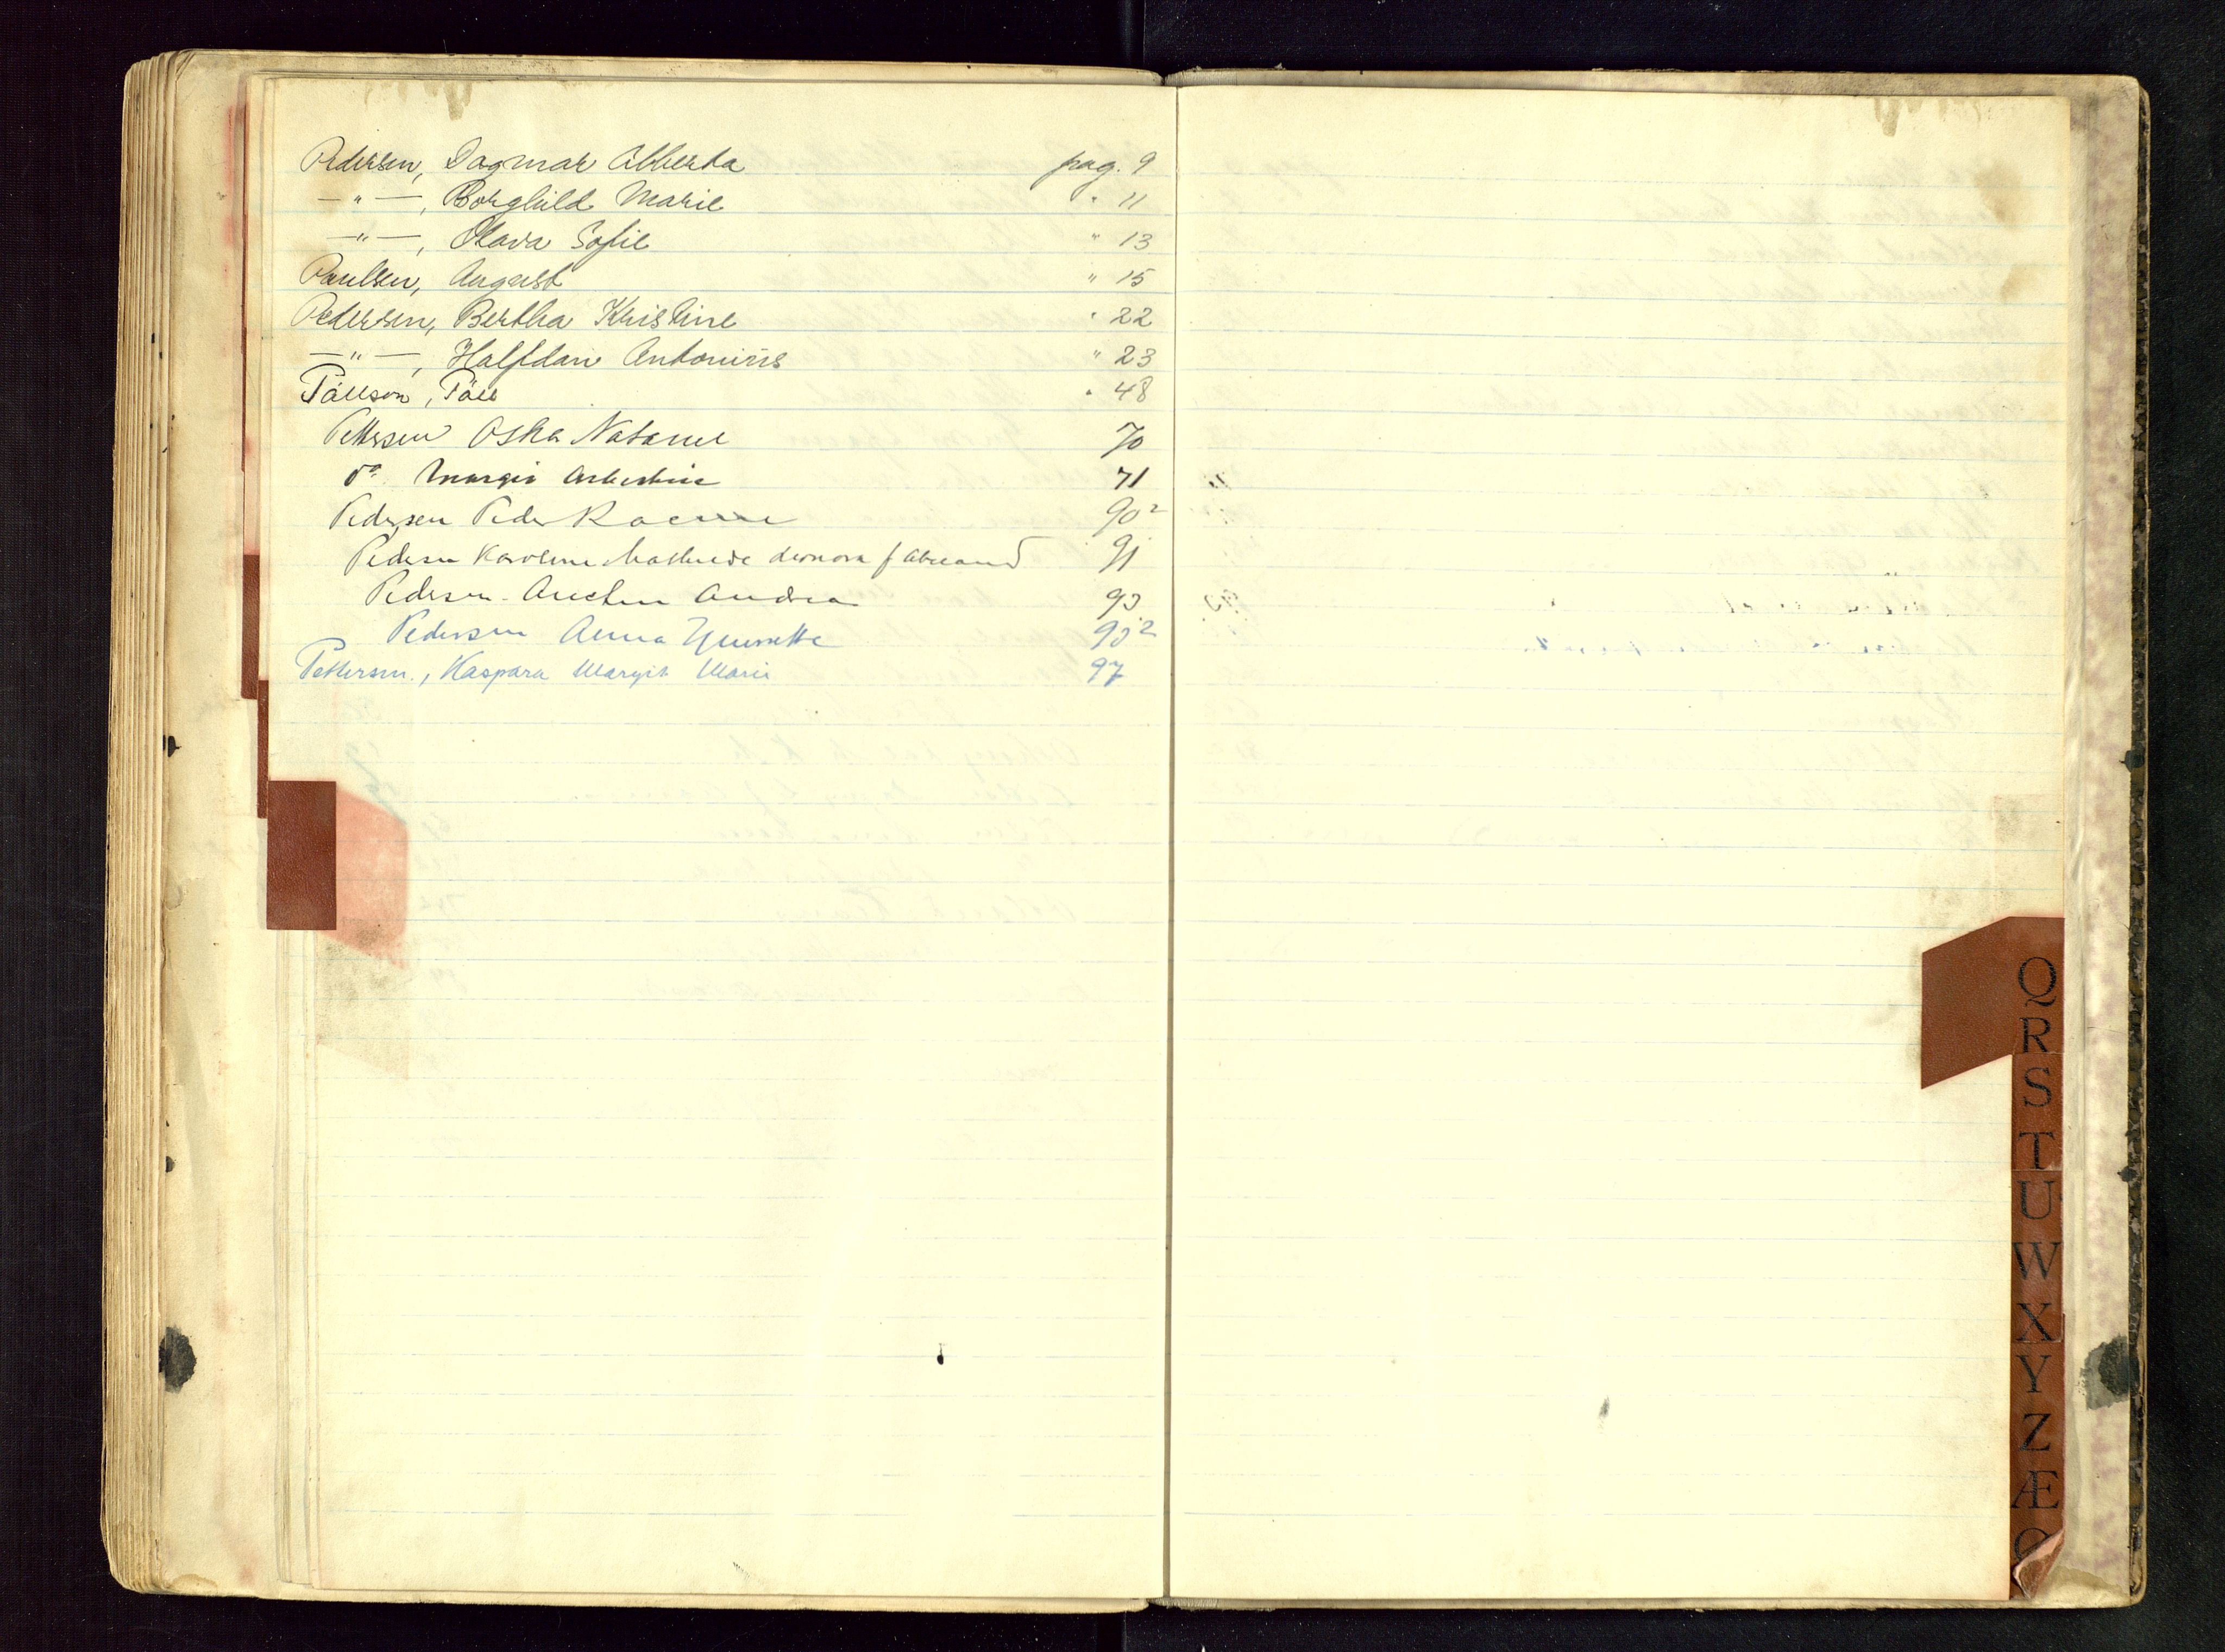 Pedersen, Dagmar Alberta pag. 9
—"—, Borghild Marie " 11
—"—, Olava Sofie " 13
Paulsen, August " 15
Pedersen, Bertha Kristine " 22
—"—, Halfdan Antonius " 23
Pállson, Páll " 48
Pettersen Oskar Natanel 70
do Margit 71
Pedersen Peder 90²
Pedersen Karoline Mathilde Leonora f Abeland 91
Pedersen Andrea 93
Pedersen Anna 93²
Pettersen, Kaspara Margit Marie 97
Q
R
S
T
U
W
X
Y
Z
Æ